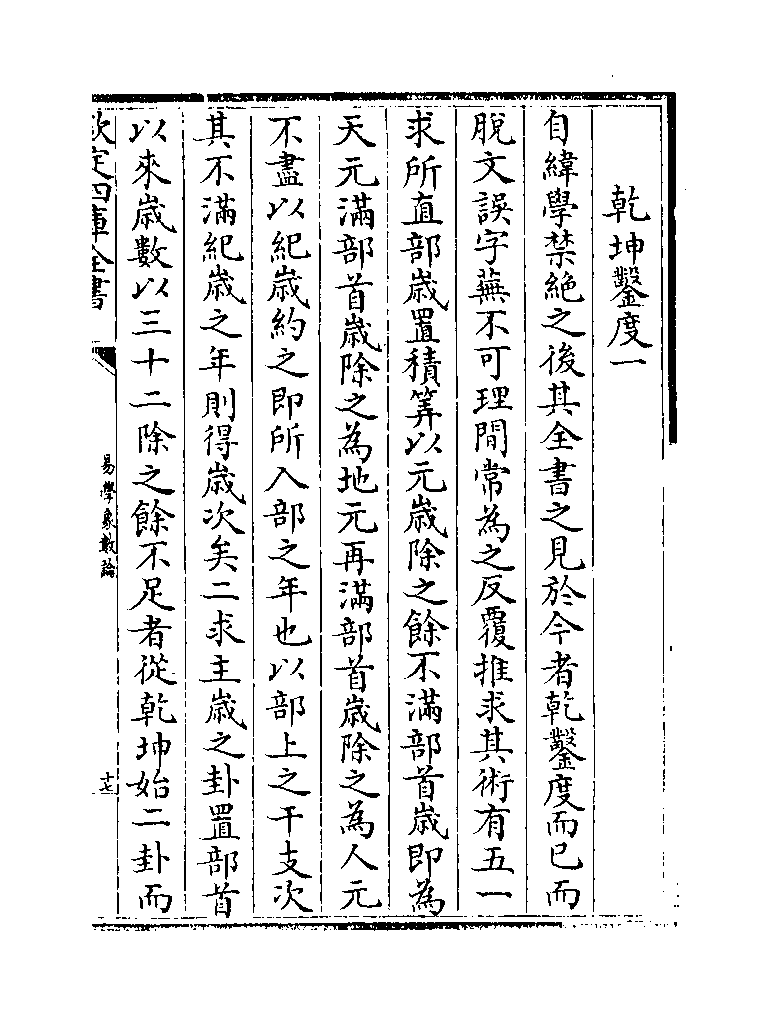 乾坤鑿度一
自緯學禁絶之後其全書之見於今者乾鑿度而已而
脫文誤字蕪不可理閒常為之反覆推求其術有五一
求所直部歲置積筭以元歲除之餘不滿部首歲即為
天元滿部首歲除之為地元再滿部首歲除之為人元
不盡以紀歲約之即所入部之年也以部上之干支次
其不滿紀歲之年則得歲次矣二求主歲之卦置部首
以來歲數以三十二除之餘不足者從乾坤始二卦而
欽定四庫全書
易學象數論
十七